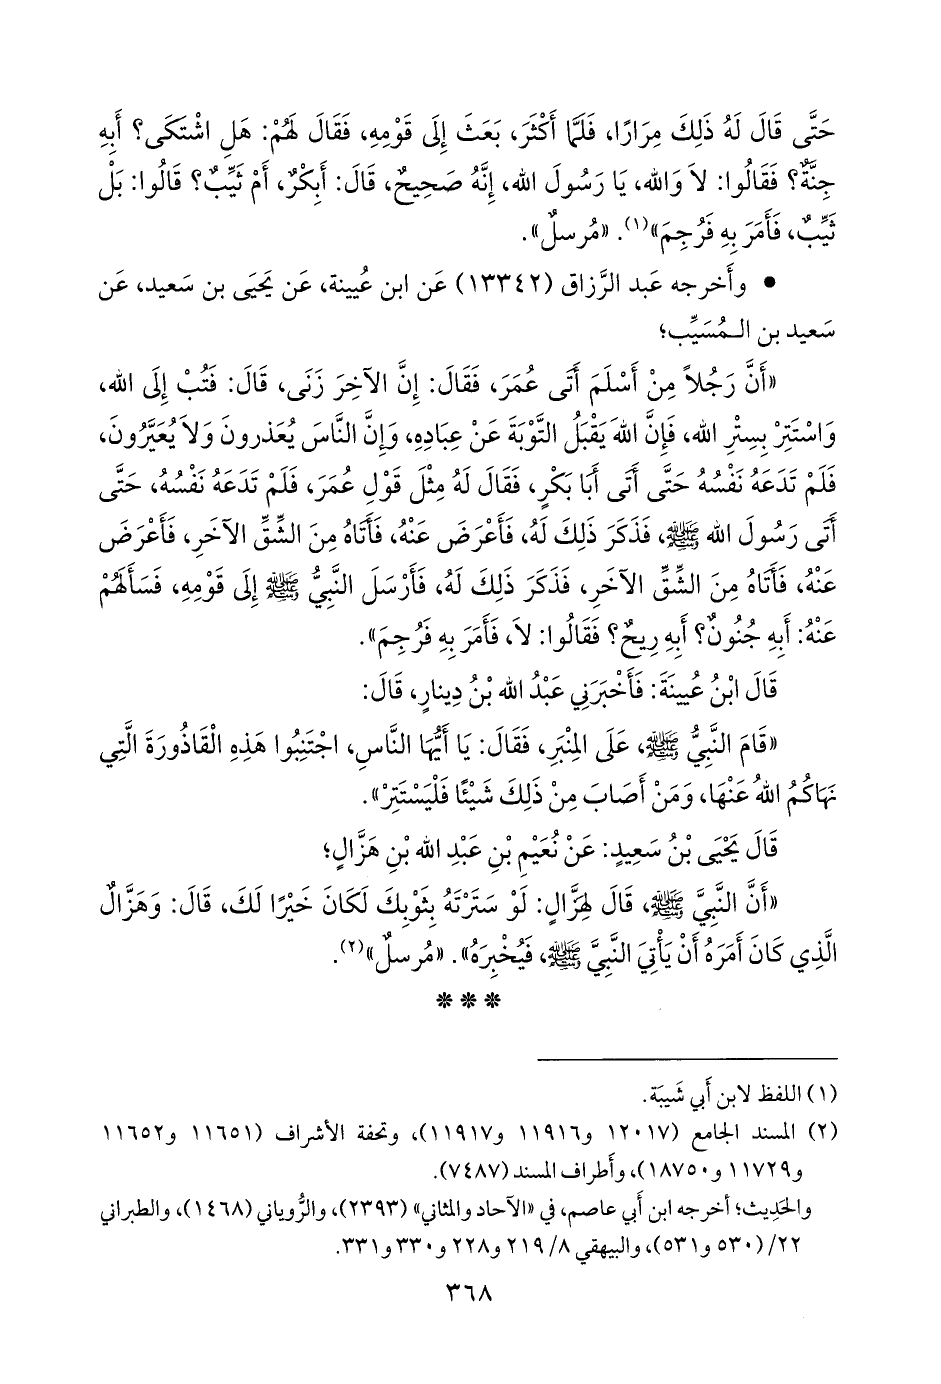 حَتَّى قَالَ لَهُ ذَلِكَ مِرَارًا، فَلَمَّا أَكْثَرَ، بَعَثَ إِلَى قَوْمِهِ، فَقَالَ لَهُمْ: هَلِ اشْتَكَى؟ أَبِهِ
جِنَّةٌ؟ فَقَالُوا: لاَ وَالله، يَا رَسُولَ الله، إِنَّهُ صَحِيحٌ، قَالَ: أَبِكْرٌ، أَمْ ثَيِّبٌ؟ قَالُوا: بَلْ
ثَيِّبٌ، فَأَمَرَ بِهِ فَرُجِمَ»(١). «مُرسلٌ».
• وأَخرجه عَبد الرَّزاق (١٣٣٤٢) عَن ابن عُيينة، عَن يَحيَى بن سَعيد، عَن
سَعيد بن الـمُسَيِّب؛
«أَنَّ رَجُلاً مِنْ أَسْلَمَ أَتَى عُمَرَ، فَقَالَ: إِنَّ الآخِرَ زَنَى، قَالَ: فَتُبْ إِلَى الله،
وَاسْتَتِرْ بِسِتْرِ الله، فَإِنَّ اللهَ يَقْبَلُ التَّوْبَةَ عَنْ عِبَادِهِ، وَإِنَّ النَّاسَ يُعَذرونَ وَلاَ يُعَيَّرُونَ،
فَلَمْ تَدَعَهُ نَفْسُهُ حَتَّى أَتَى أَبَا بَكْرٍ، فَقَالَ لَهُ مِثْلَ قَوْلِ عُمَرَ، فَلَمْ تَدَعَهُ نَفْسُهُ، حَتَّى
أَتَى رَسُولَ الله ﷺ، فَذَكَرَ ذَلِكَ لَهُ، فَأَعْرَضَ عَنْهُ، فَأَتَاهُ مِنَ الشِّقِّ الآخَرِ، فَأَعْرَضَ
عَنْهُ، فَأَتَاهُ مِنَ الشِّقِّ الآخَرِ، فَذَكَرَ ذَلِكَ لَهُ، فَأَرْسَلَ النَّبِيُّ ﷺ إِلَى قَوْمِهِ، فَسَأَلَهُمْ
عَنْهُ: أَبِهِ جُنُونٌ؟ أَبِهِ رِيحٌ؟ فَقَالُوا: لاَ، فَأَمَرَ بِهِ فَرُجِمَ».
قَالَ ابْنُ عُيينَةَ: فَأَخْبَرَنِي عَبْدُ الله بْنُ دِينارٍ، قَالَ:
«قَامَ النَّبِيُّ ﷺ، عَلَى المِنْبَرِ، فَقَالَ: يَا أَيُّهَا النَّاسِ، اجْتَنِبُوا هَذِهِ الْقَاذُورَةَ الَّتِي
نَهَاكُمُ اللهُ عَنْهَا، وَمَنْ أَصَابَ مِنْ ذَلِكَ شَيْئًا فَلْيَسْتَتِرْ».
قَالَ يَحْيَى بْنُ سَعِيدٍ: عَنْ نُعَيْمِ بْنِ عَبْدِ الله بْنِ هَزَّالٍ؛
«أَنَّ النَّبِيَّ ﷺ، قَالَ لِهَزَّالٍ: لَوْ سَتَرْتَهُ بِثَوْبِكَ لَكَانَ خَيْرًا لَكَ، قَالَ: وَهَزَّالٌ
الَّذِي كَانَ أَمَرَهُ أَنْ يَأْتِيَ النَّبِيَّ ﷺ، فَيُخْبِرَهُ». «مُرسلٌ»(٢).
* * *
(١) اللفظ لابن أَبي شَيبَة.
(٢) المسند الجامع (١٢٠١٧ و١١٩١٦ و١١٩١٧)، وتحفة الأشراف (١١٦٥١ و١١٦٥٢
و١١٧٢٩ و١٨٧٥٠)، وأَطراف المسند (٧٤٨٧).
والحَدِيث؛ أخرجه ابن أَبي عاصم، في «الآحاد والمثاني» (٢٣٩٣)، والرُّوياني (١٤٦٨)، والطبراني
٢٢/ (٥٣٠ و٥٣١)، والبيهقي ٨/ ٢١٩ و٢٢٨ و٣٣٠ و٣٣١.
٣٦٨